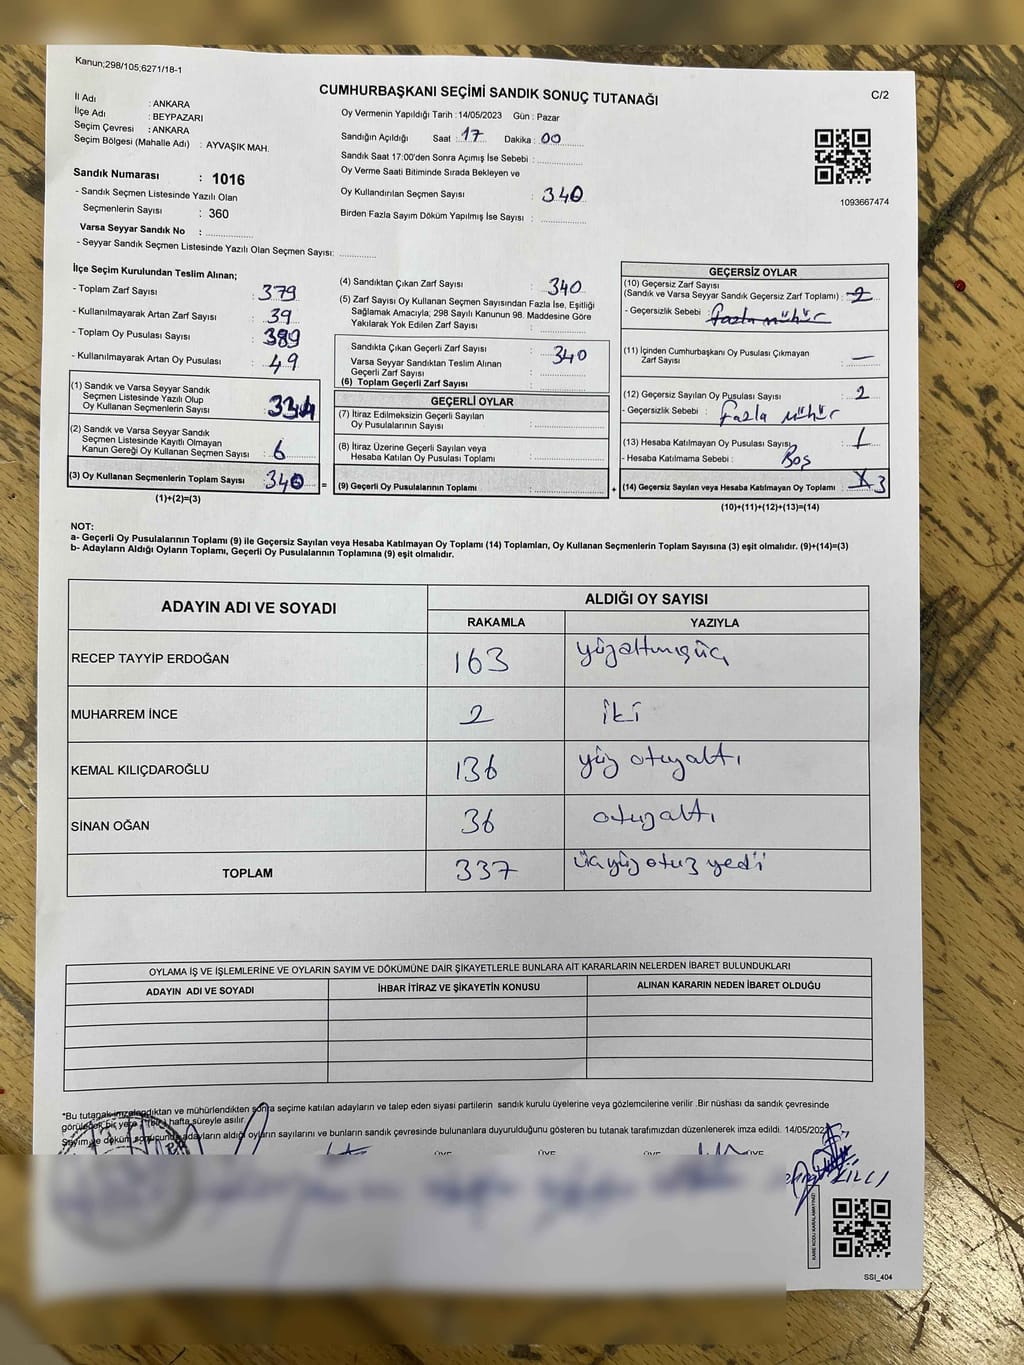 Kanun;298/105;6271/18-1
CUMHURBAŞKANI SEÇİMİ SANDIK SONUÇ TUTANAĞI
C/2
İl Adı : ANKARA
İlçe Adı : BEYPAZARI
Seçim Çevresi : ANKARA
Seçim Bölgesi (Mahalle Adı) : AYVAŞIK MAH.
Sandık Numarası : 1016
- Sandık Seçmen Listesinde Yazılı Olan
Seçmenlerin Sayısı : 360
Varsa Seyyar Sandık No : ............
- Seyyar Sandık Seçmen Listesinde Yazılı Olan Seçmen Sayısı: ............
Oy Vermenin Yapıldığı Tarih :14/05/2023 Gün : Pazar
Sandığın Açıldığı Saat : 17 Dakika : 00
Sandık Saat 17:00'den Sonra Açımış İse Sebebi : ............
Oy Verme Saati Bitiminde Sırada Bekleyen ve
Oy Kullandırılan Seçmen Sayısı : 340
Birden Fazla Sayım Döküm Yapılmış İse Sayısı : ............
1093667474
İlçe Seçim Kurulundan Teslim Alınan;
- Toplam Zarf Sayısı : 379
- Kullanılmayarak Artan Zarf Sayısı : 39
- Toplam Oy Pusulası Sayısı : 389
- Kullanılmayarak Artan Oy Pusulası : 49
(1) Sandık ve Varsa Seyyar Sandık
Seçmen Listesinde Yazılı Olup
Oy Kullanan Seçmenlerin Sayısı : 334
(2) Sandık ve Varsa Seyyar Sandık
Seçmen Listesinde Kayıtlı Olmayan
Kanun Gereği Oy Kullanan Seçmen Sayısı : 6
(3) Oy Kullanan Seçmenlerin Toplam Sayısı : 340
(1)+(2)=(3)
(4) Sandıktan Çıkan Zarf Sayısı : 340
(5) Zarf Sayısı Oy Kullanan Seçmen Sayısından Fazla İse, Eşitliği
Sağlamak Amacıyla; 298 Sayılı Kanunun 98. Maddesine Göre
Yakılarak Yok Edilen Zarf Sayısı : ............
Sandıkta Çıkan Geçerli Zarf Sayısı : 340
Varsa Seyyar Sandıktan Teslim Alınan
Geçerli Zarf Sayısı : ............
(6) Toplam Geçerli Zarf Sayısı : ............
GEÇERLİ OYLAR
(7) İtiraz Edilmeksizin Geçerli Sayılan
Oy Pusulalarının Sayısı : ............
(8) İtiraz Üzerine Geçerli Sayılan veya
Hesaba Katılan Oy Pusulası Toplamı : ............
= (9) Geçerli Oy Pusulalarının Toplamı : ............ +
GEÇERSİZ OYLAR
(10) Geçersiz Zarf Sayısı
(Sandık ve Varsa Seyyar Sandık Geçersiz Zarf Toplamı) : 2
- Geçersizlik Sebebi : fazla mühür
(11) İçinden Cumhurbaşkanı Oy Pusulası Çıkmayan
Zarf Sayısı : —
(12) Geçersiz Sayılan Oy Pusulası Sayısı : 2
- Geçersizlik Sebebi : fazla mühür
(13) Hesaba Katılmayan Oy Pusulası Sayısı : 1
- Hesaba Katılmama Sebebi : Boş
(14) Geçersiz Sayılan veya Hesaba Katılmayan Oy Toplamı : 3
(10)+(11)+(12)+(13)=(14)
NOT:
a- Geçerli Oy Pusulalarının Toplamı (9) ile Geçersiz Sayılan veya Hesaba Katılmayan Oy Toplamı (14) Toplamları, Oy Kullanan Seçmenlerin Toplam Sayısına (3) eşit olmalıdır. (9)+(14)=(3)
b- Adayların Aldığı Oyların Toplamı, Geçerli Oy Pusulalarının Toplamına (9) eşit olmalıdır.
ADAYIN ADI VE SOYADI ALDIĞI OY SAYISI
RAKAMLA YAZIYLA
RECEP TAYYİP ERDOĞAN 163 yüzaltmışüç
MUHARREM İNCE 2 iki
KEMAL KILIÇDAROĞLU 136 yüz otuzaltı
SİNAN OĞAN 36 otuzaltı
TOPLAM 337 üçyüz otuz yedi
OYLAMA İŞ VE İŞLEMLERİNE VE OYLARIN SAYIM VE DÖKÜMÜNE DAİR ŞİKAYETLERLE BUNLARA AİT KARARLARIN NELERDEN İBARET BULUNDUKLARI
ADAYIN ADI VE SOYADI İHBAR İTİRAZ VE ŞİKAYETİN KONUSU ALINAN KARARIN NEDEN İBARET OLDUĞU
*Bu tutanak imzalandıktan ve mühürlendikten sonra seçime katılan adayların ve talep eden siyasi partilerin sandık kurulu üyelerine veya gözlemcilerine verilir .Bir nüshası da sandık çevresinde
görülecek bir yere, 1 (bir) hafta süreyle asılır.
Sayım ve döküm sonucunda adayların aldığı oyların sayılarını ve bunların sandık çevresinde bulunanlara duyurulduğunu gösteren bu tutanak tarafımızdan düzenlenerek imza edildi. 14/05/2023
ÜYE ÜYE ÜYE ÜYE
KARE KODU KARALAMAYINIZ!
SSI_404